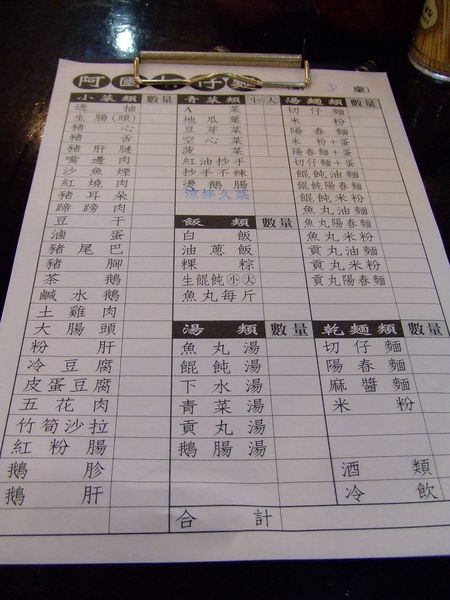 阿國切仔麵 8 桌
小菜類 數量 青菜類 小 大 湯麵類 數量
透抽 A菜 切仔麵
生腸(頭) 地瓜葉 米粉
豬心 豆芽菜 陽春麵
豬舌 空心菜 米粉+蛋
豬肝腱 菠菜 陽春麵+蛋
嘴邊肉 紅油抄手 切仔麵+蛋
沙魚煙 抄手不辣 餛飩油麵
紅燒肉 燙鵝腸 餛飩陽春麵
豬耳朵 涼拌久菜 餛飩米粉
蹄蹄肉 魚丸油麵
豆干 飯類 數量 魚丸陽春麵
滷蛋 白飯 魚丸米粉
豬尾巴 油蔥飯 貢丸油麵
豬腳 粿粽 貢丸米粉
茶鵝 生餛飩小大 貢丸陽春麵
鹹水鵝 魚丸每斤
土雞肉
大腸頭 湯類 數量 乾麵類 數量
粉肝 魚丸湯 切仔麵
冷豆腐 餛飩湯 陽春麵
皮蛋豆腐 下水湯 麻醬麵
五花肉 青菜湯 米粉
竹筍沙拉 貢丸湯
紅粉腸 鵝腸湯
鵝胗 酒類
鵝肝 冷飲
合計